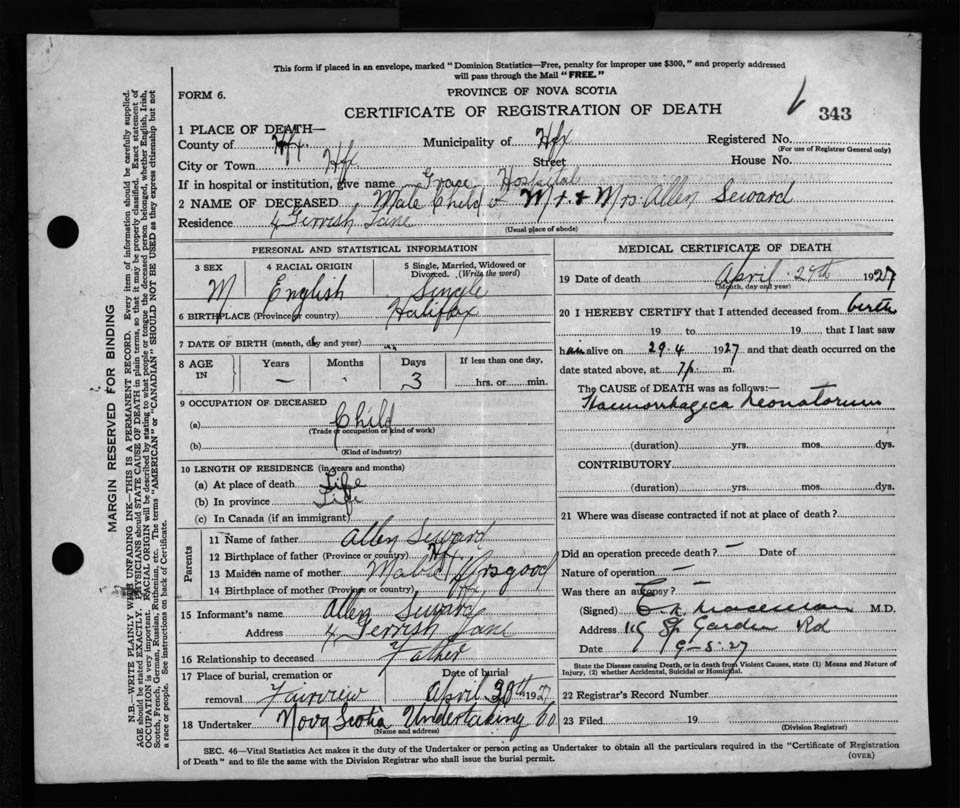 This form if placed in an envelope, marked "Dominion Statistics—Free, penalty for improper use $300," and properly addressed
will pass through the Mail "FREE."
FORM 6.
PROVINCE OF NOVA SCOTIA
CERTIFICATE OF REGISTRATION OF DEATH
343
1 PLACE OF DEATH—
County of Hfx. Municipality of Hfx Registered No.
(For use of Registrar General only)
City or Town Hfx Street House No.
If in hospital or institution, give name Grace Hospital
2 NAME OF DECEASED Male Child of Mr. & Mrs. Allen Seward
Residence 4 Gerrish Lane
(Usual place of abode)
PERSONAL AND STATISTICAL INFORMATION
3 SEX 4 RACIAL ORIGIN 5 Single, Married, Widowed or
Divorced. (Write the word)
M English Single
6 BIRTHPLACE (Province or country) Halifax
7 DATE OF BIRTH (month, day and year)
8 AGE IN Years Months Days If less than one day,
— 3 hrs. or min.
9 OCCUPATION OF DECEASED
(a) Child
(Trade or occupation or kind of work)
(b)
(Kind of industry)
10 LENGTH OF RESIDENCE (in years and months)
(a) At place of death Life
(b) In province Life
(c) In Canada (if an immigrant)
Parents
11 Name of father Allen Seward
12 Birthplace of father (Province or country) Hfx
13 Maiden name of mother Mabel
14 Birthplace of mother (Province or country) Hfx
15 Informant's name Allen Seward
Address 4 Gerrish Lane
16 Relationship to deceased Father
17 Place of burial, cremation or Date of burial
removal Fairview April 30th 1927
18 Undertaker Nova Scotia Undertaking Co
(Name and address)
MEDICAL CERTIFICATE OF DEATH
19 Date of death April 29th 1927
(Month, day and year)
20 I HEREBY CERTIFY that I attended deceased from birth
19 to 19 that I last saw
him alive on 29.4 1927 and that death occurred on the
date stated above, at 7 p. m.
The CAUSE of DEATH was as follows:—
Haemorrhagica Neonatorum
(duration) yrs. mos. dys.
CONTRIBUTORY
(duration) yrs. mos. dys.
21 Where was disease contracted if not at place of death?
Did an operation precede death? — Date of
Nature of operation —
Was there an autopsy? —
(Signed) M.D.
Address Sp Garden Rd
Date 9-5-27
State the Disease causing Death, or in death from Violent Causes, state (1) Means and Nature of
Injury, (2) whether Accidental, Suicidal or Homicidal.
22 Registrar's Record Number
23 Filed 19
(Division Registrar)
SEC. 46—Vital Statistics Act makes it the duty of the Undertaker or person acting as Undertaker to obtain all the particulars required in the "Certificate of Registration
of Death" and to file the same with the Division Registrar who shall issue the burial permit.
(OVER)
MARGIN RESERVED FOR BINDING
N.B.—WRITE PLAINLY WITH UNFADING INK—THIS IS A PERMANENT RECORD. Every item of information should be carefully supplied.
AGE should be stated EXACTLY. PHYSICIANS should STATE CAUSE OF DEATH in plain terms, so that it may be properly classified. Exact statement of
OCCUPATION is very important. RACIAL ORIGIN will be described by stating to what people or tongue the deceased person belonged, whether English, Irish,
Scotch, French, German, Russian, Ruthenian, etc. The terms "AMERICAN" or "CANADIAN" SHOULD NOT BE USED as they express citizenship but not
a race or people. See instructions on back of Certificate.